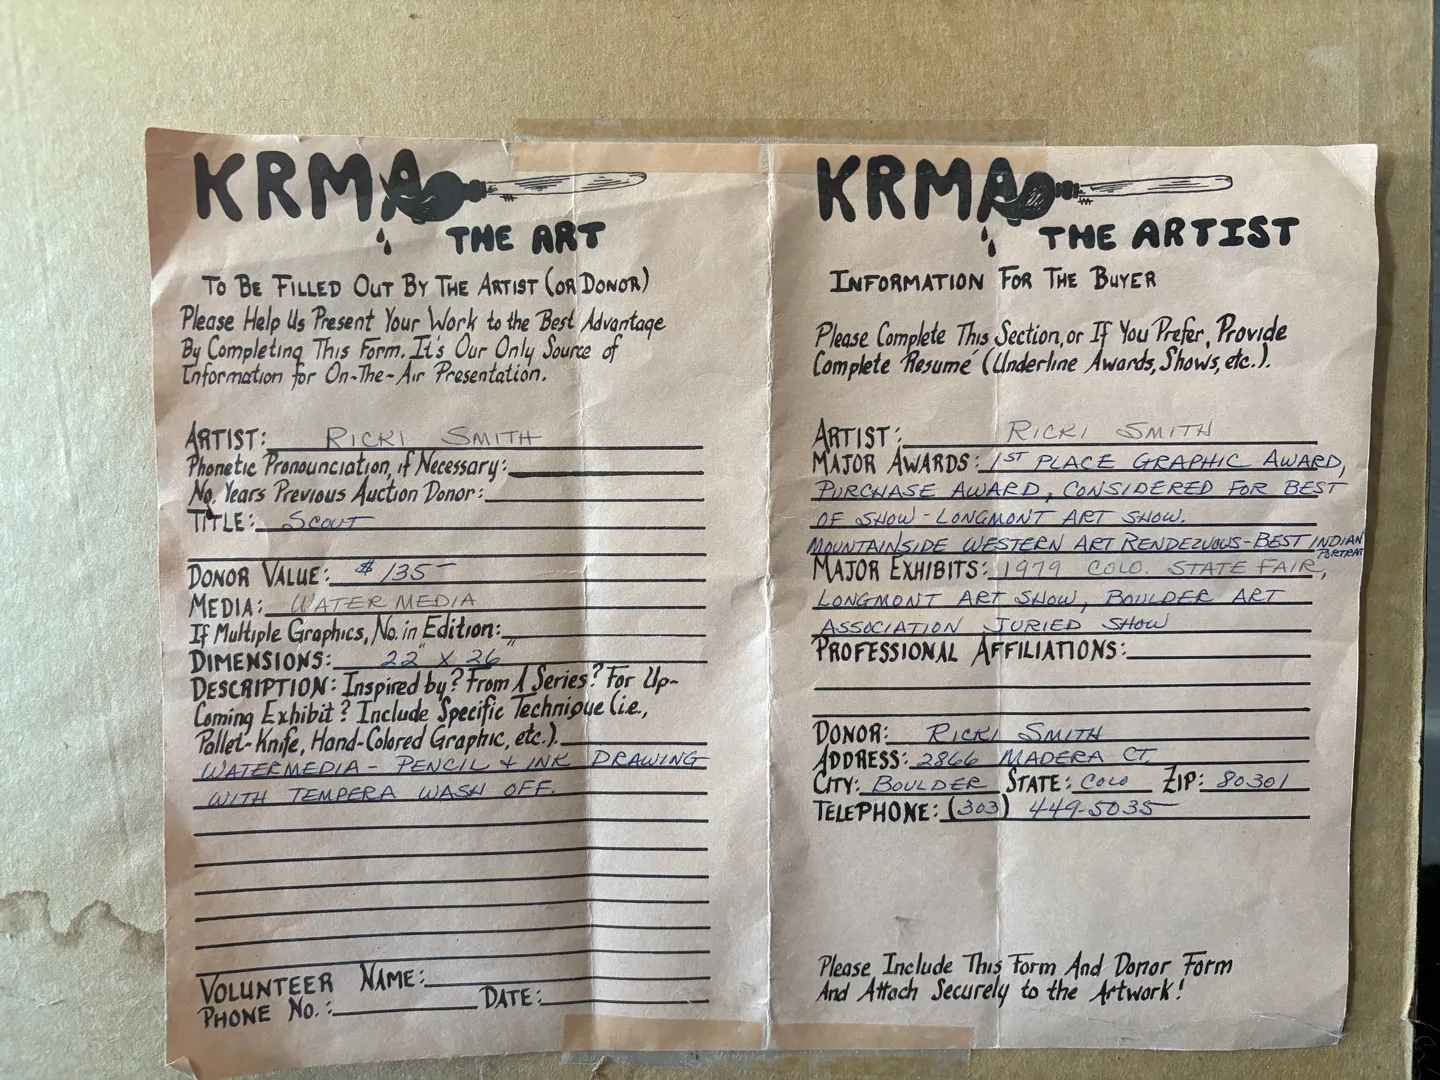 KRMA
THE ART
TO BE FILLED OUT BY THE ARTIST (OR DONOR)
Please Help Us Present Your Work to the Best Advantage
By Completing This Form. It's Our Only Source of
Information for On-The-Air Presentation.
ARTIST: RICKI SMITH
Phonetic Pronounciation, if Necessary:
No. Years Previous Auction Donor:
TITLE: SCOUT
DONOR VALUE: $135-
MEDIA: WATER MEDIA
If Multiple Graphics, No. in Edition:
DIMENSIONS: 22" X 26"
DESCRIPTION: Inspired by? From A Series? For Up-
Coming Exhibit? Include Specific Technique (i.e.,
Pallet-Knife, Hand-Colored Graphic, etc.).
WATERMEDIA - PENCIL + INK DRAWING
WITH TEMPERA WASH OFF.
VOLUNTEER NAME:
PHONE NO.: DATE:
KRMA
THE ARTIST
INFORMATION FOR THE BUYER
Please Complete This Section, or If You Prefer, Provide
Complete Resumé (Underline Awards, Shows, etc.).
ARTIST: RICKI SMITH
MAJOR AWARDS: 1ST PLACE GRAPHIC AWARD,
PURCHASE AWARD, CONSIDERED FOR BEST
OF SHOW - LONGMONT ART SHOW.
MOUNTAINSIDE WESTERN ART RENDEZVOUS - BEST INDIAN
PORTRAIT
MAJOR EXHIBITS: 1979 COLO. STATE FAIR,
LONGMONT ART SHOW, BOULDER ART
ASSOCIATION JURIED SHOW
PROFESSIONAL AFFILIATIONS:
DONOR: RICKI SMITH
ADDRESS: 2866 MADERA CT.
CITY: BOULDER STATE: COLO ZIP: 80301
TELEPHONE: (303) 449-5035
Please Include This Form And Donor Form
And Attach Securely to the Artwork!